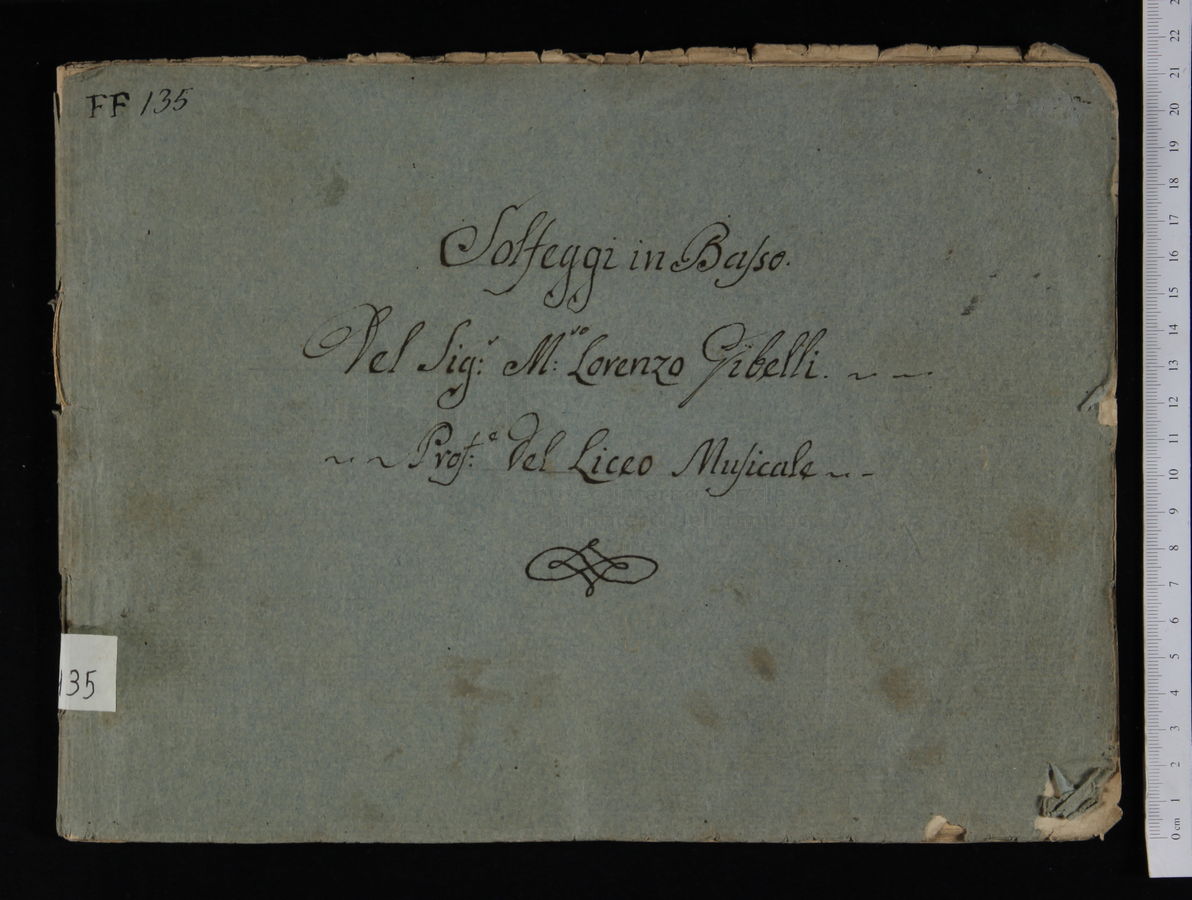 FF 135
Solfeggi in Baſso.
Del Sig:r M:ro Lorenzo Gibelli. ~ ~
~ ~ Prof:e Del Liceo Muſicale ~ -
135
0 cm 1 2 3 4 5 6 7 8 9 10 11 12 13 14 15 16 17 18 19 20 21 22